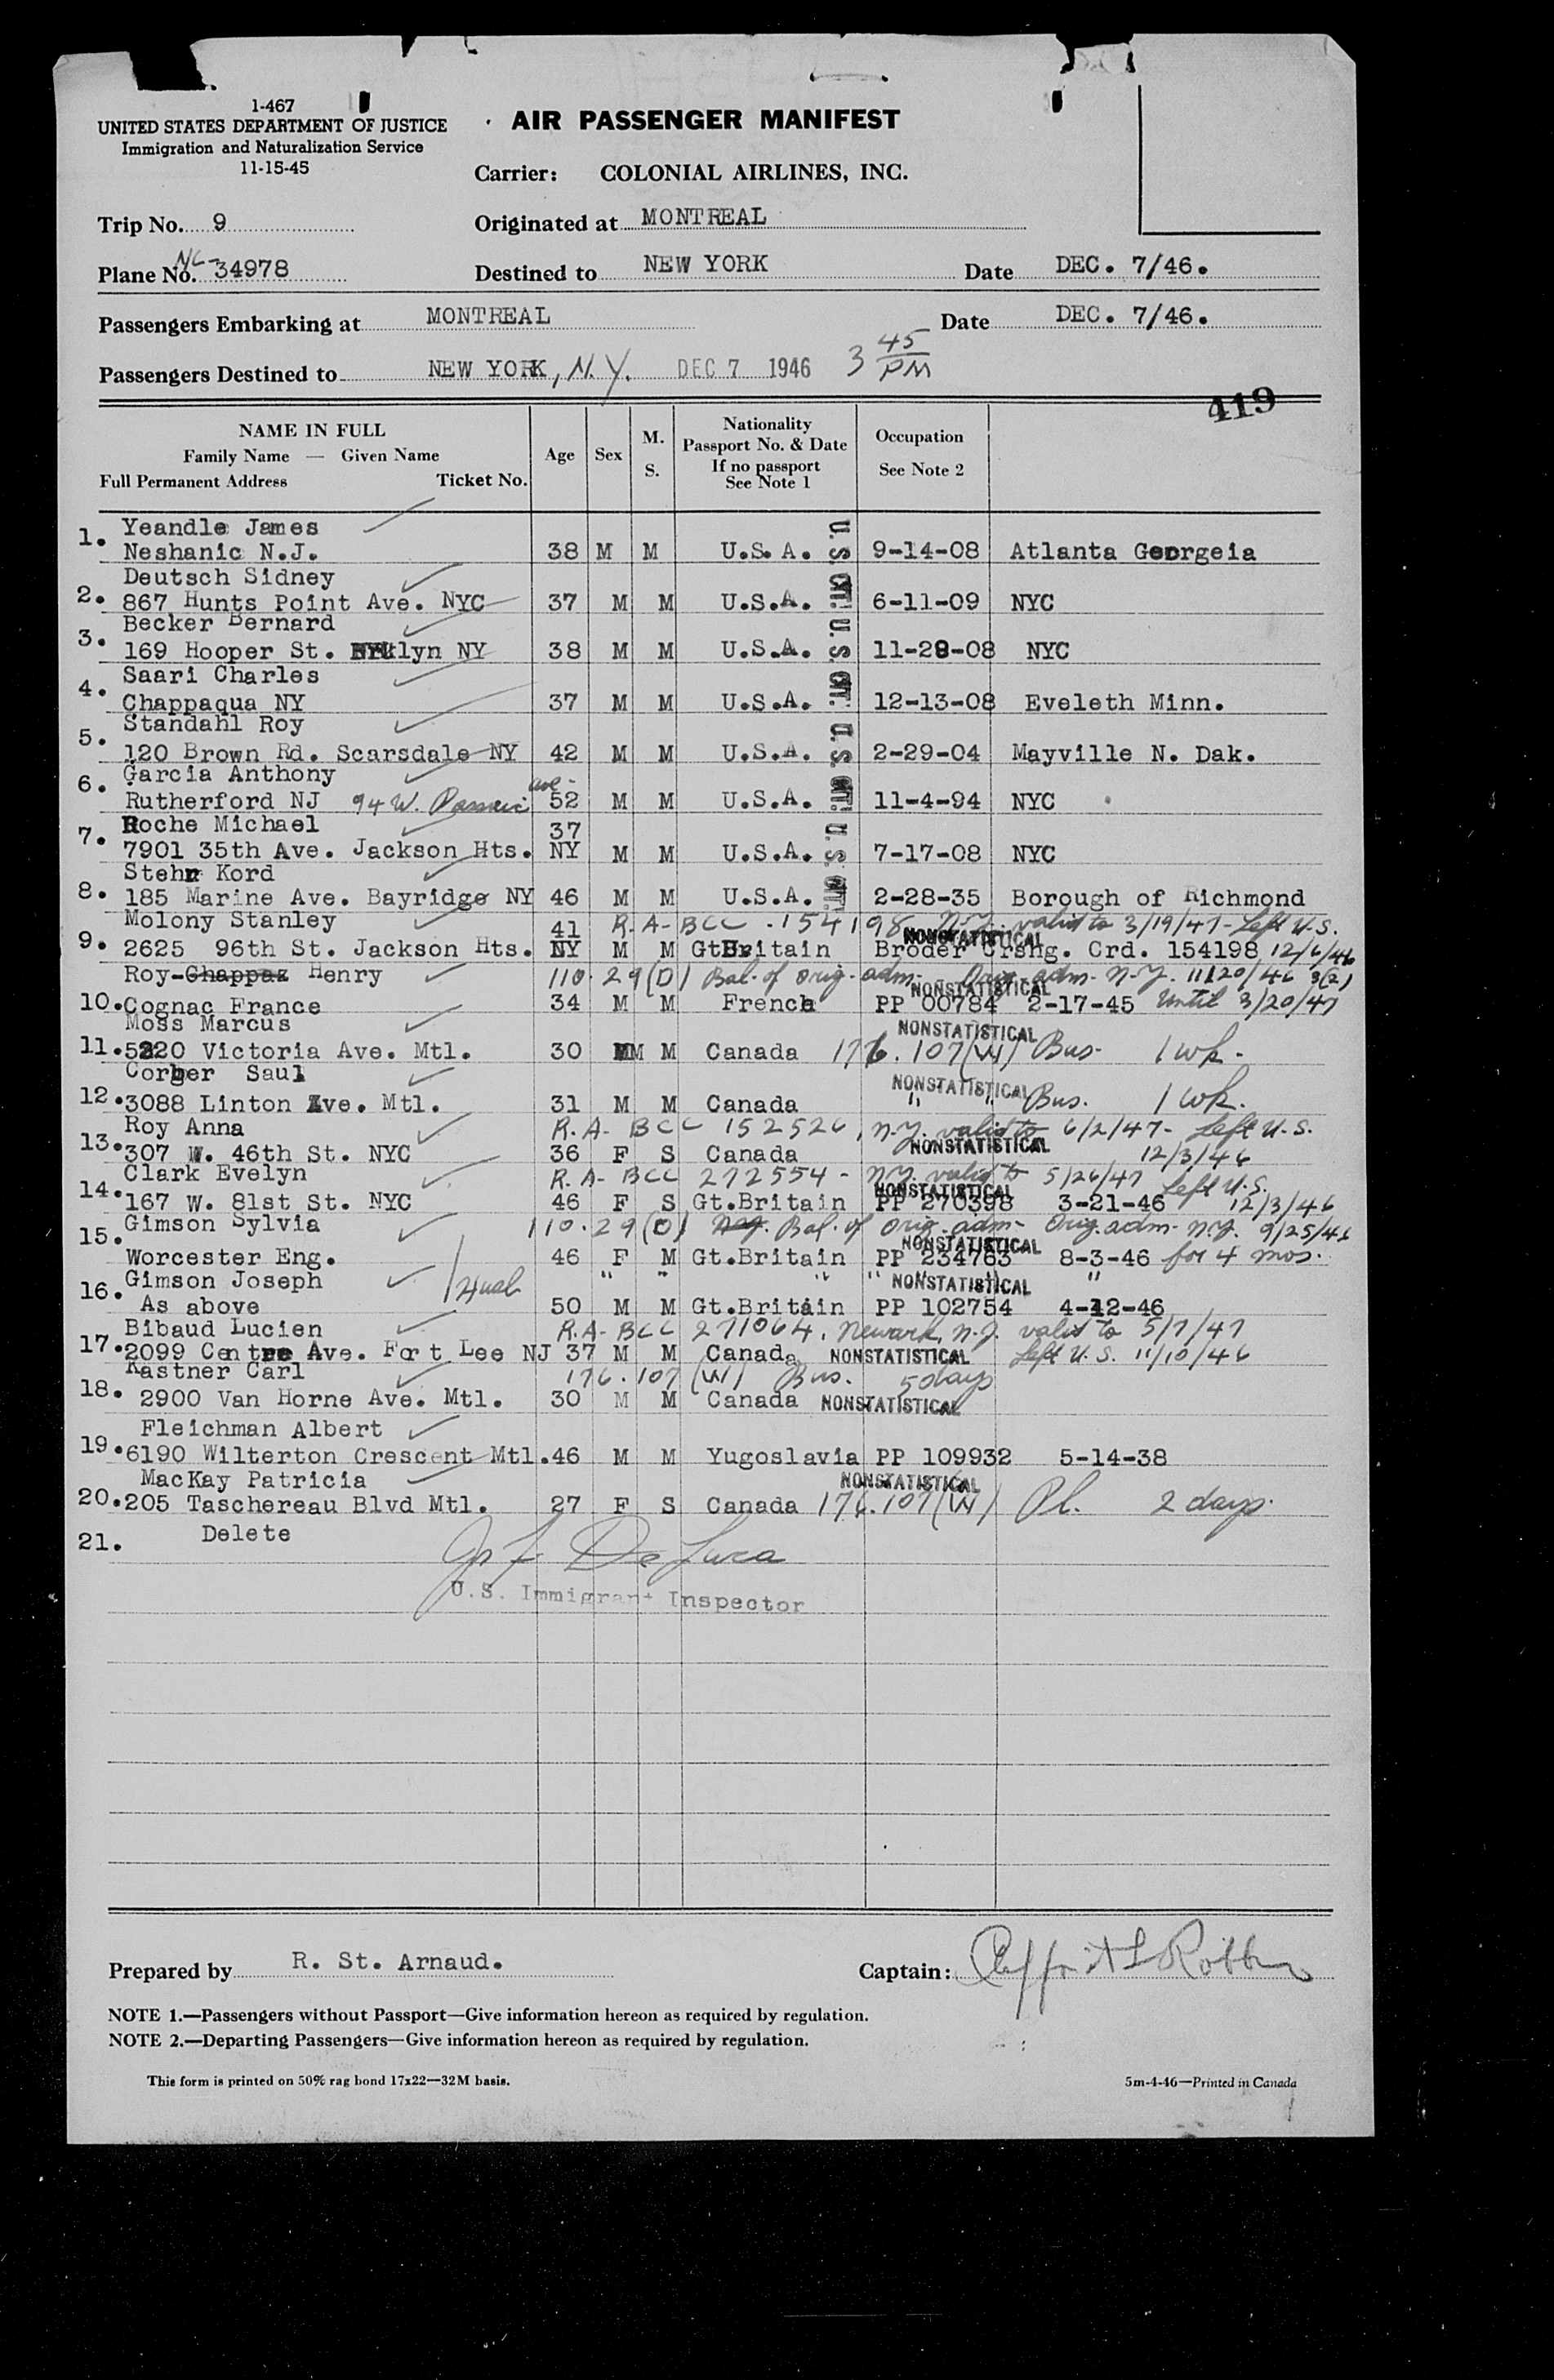 1-467
UNITED STATES DEPARTMENT OF JUSTICE
Immigration and Naturalization Service
11-15-45
AIR PASSENGER MANIFEST
Carrier: COLONIAL AIRLINES, INC.
Trip No. 9 Originated at MONTREAL
Plane No. NC-34978 Destined to NEW YORK Date DEC. 7/46.
Passengers Embarking at MONTREAL Date DEC. 7/46.
Passengers Destined to NEW YORK, N.Y. DEC 7 1946 3 45 PM
419
NAME IN FULL
Family Name — Given Name
Full Permanent Address Ticket No.
Age Sex M. S.
Nationality
Passport No. & Date
If no passport
See Note 1
Occupation
See Note 2
1. Yeandle James
Neshanic N.J. 38 M M U.S.A. U.S. CIT. 9-14-08 Atlanta Georgeia
2. Deutsch Sidney
867 Hunts Point Ave. NYC 37 M M U.S.A. U.S. CIT. 6-11-09 NYC
3. Becker Bernard
169 Hooper St. Brklyn NY 38 M M U.S.A. U.S. CIT. 11-28-08 NYC
4. Saari Charles
Chappaqua NY 37 M M U.S.A. 12-13-08 Eveleth Minn.
5. Standahl Roy
120 Brown Rd. Scarsdale NY 42 M M U.S.A. U.S. CIT. 2-29-04 Mayville N. Dak.
6. Garcia Anthony
Rutherford NJ 94 W. Passaic ave- 52 M M U.S.A. 11-4-94 NYC
7. Roche Michael 37
7901 35th Ave. Jackson Hts. NY M M U.S.A. U.S. CIT. 7-17-08 NYC
8. Stehn Kord
185 Marine Ave. Bayridge NY 46 M M U.S.A. 2-28-35 Borough of Richmond
Molony Stanley 41 R.A-BCC-154198 N.Y. valid to 3/19/47- Left U.S.
NONSTATISTICAL
9. 2625 96th St. Jackson Hts. NY M M GtBritain Broder Crsng. Crd. 154198 12/6/46
Roy-Chappaz Henry 110.29(D) Bal. of orig. adm- Orig. adm- N.Y. 11/20/46 3(2)
NONSTATISTICAL
10. Cognac France 34 M M French PP 00784 2-17-45 Until 3/20/47
Moss Marcus NONSTATISTICAL
11. 5220 Victoria Ave. Mtl. 30 M M Canada 176.107(W) Bus- 1 wk-
Corber Saul NONSTATISTICAL
12. 3088 Linton Ave. Mtl. 31 M M Canada " " Bus. 1 wk.
Roy Anna R.A- BCC 152526, N.Y. valid to 6/2/47- Left U.S.
NONSTATISTICAL
13. 307 W. 46th St. NYC 36 F S Canada 12/3/46
Clark Evelyn R.A- BCC 272554- N.Y. valid to 5/26/47 Left U.S.
NONSTATISTICAL
14. 167 W. 81st St. NYC 46 F S Gt.Britain PP 270398 3-21-46 12/3/46
15. Gimson Sylvia 110.29(D) Bal. of orig. adm- Orig. adm- N.Y. 9/25/46
NONSTATISTICAL
Worcester Eng. 46 F M Gt.Britain PP 234763 8-3-46 for 4 mos.
16. Gimson Joseph " " " " NONSTATISTICAL "
As above 50 M M Gt.Britain PP 102754 4-12-46
Bibaud Lucien R.A- BCC 271064, Newark, N.J. valid to 5/7/47
17. 2099 Centre Ave. Fort Lee NJ 37 M M Canada NONSTATISTICAL Left U.S. 11/10/46
Kastner Carl 176.107(W) Bus. 5 days
18. 2900 Van Horne Ave. Mtl. 30 M M Canada NONSTATISTICAL
Fleichman Albert
19. 6190 Wilterton Crescent Mtl. 46 M M Yugoslavia PP 109932 5-14-38
MacKay Patricia NONSTATISTICAL
20. 205 Taschereau Blvd Mtl. 27 F S Canada 176.107(W) Pl. 2 days.
21. Delete
De Luca
U.S. Immigrant Inspector
Prepared by R. St. Arnaud. Captain:
NOTE 1.—Passengers without Passport—Give information hereon as required by regulation.
NOTE 2.—Departing Passengers—Give information hereon as required by regulation.
This form is printed on 50% rag bond 17x22—32M basis. 5m-4-46—Printed in Canada